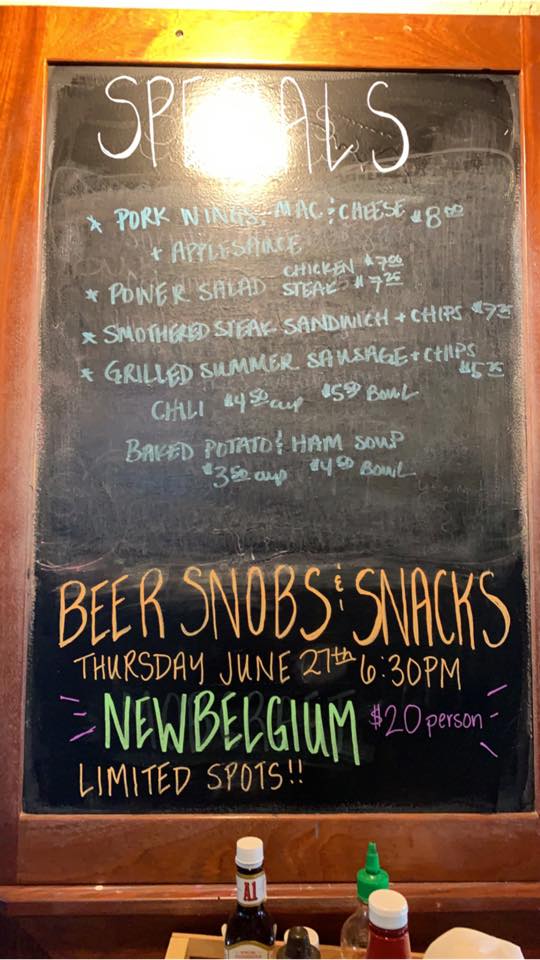 SPECIALS
* PORK WINGS, MAC & CHEESE $8.00
+ APPLESAUCE
* POWER SALAD CHICKEN $7.00
STEAK $7.25
* SMOTHERED STEAK SANDWICH + CHIPS $7.25
* GRILLED SUMMER SAUSAGE + CHIPS $5.25
CHILI $4.50 cup $5.50 BOWL
BAKED POTATO & HAM SOUP
$3.50 cup $4.50 BOWL
BEER SNOBS & SNACKS
THURSDAY JUNE 27th 6:30PM
NEW BELGIUM $20 person
LIMITED SPOTS!!
A1